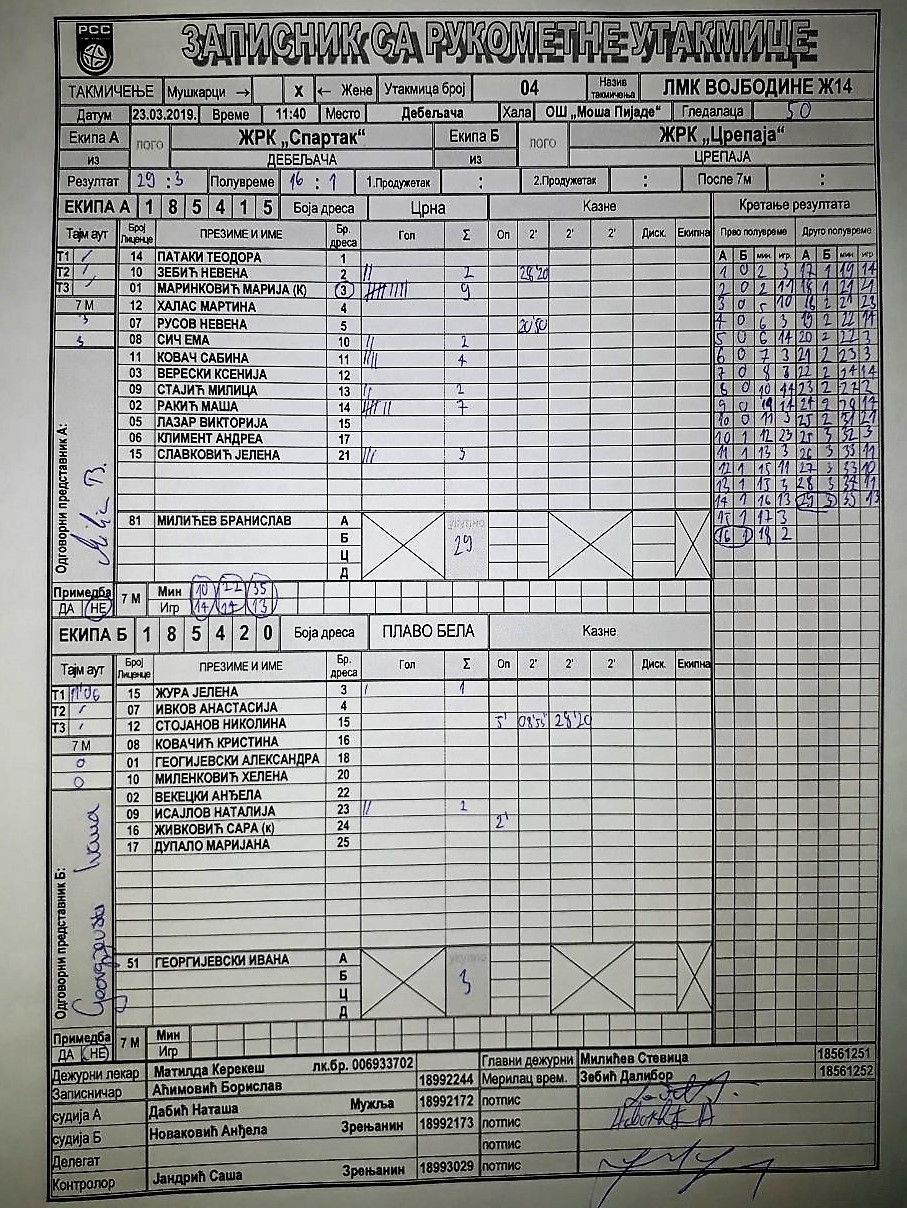 РСС
ЗАПИСНИК СА РУКОМЕТНЕ УТАКМИЦЕ
ТАКМИЧЕЊЕ Мушкарци → X ← Жене Утакмица број 04 Назив такмичења ЛМК ВОЈБОДИНЕ Ж14
Датум 23.03.2019. Време 11:40 Место Дебељача Хала ОШ „Моша Пијаде“ Гледалаца 50
Екипа А из лого ЖРК „Спартак“ ДЕБЕЉАЧА Екипа Б из лого ЖРК „Црепаја“ ЦРЕПАЈА
Резултат 29 : 3 Полувреме 16 : 1 1.Продужетак : 2.Продужетак : После 7м :
ЕКИПА А 1 8 5 4 1 5 Боја дреса Црна Казне Кретање резултата
Тајм аут Број Лиценце ПРЕЗИМЕ И ИМЕ Бр. дреса Гол Σ Оп 2' 2' 2' Диск. Екипна Прво полувреме Друго полувреме
А Б мин. игр. А Б мин игр
Т1 / 14 ПАТАКИ ТЕОДОРА 1
1 0 2 3 17 1 19 14
Т2 / 10 ЗЕБИЋ НЕВЕНА 2 // 2 28'20
2 0 2 11 18 1 21 21
Т3 / 01 МАРИНКОВИЋ МАРИЈА (К) 3 9
3 0 5 10 18 2 21 23
7 М 12 ХАЛАС МАРТИНА 4
4 0 6 3 19 2 22 11
3 07 РУСОВ НЕВЕНА 5 20'50
5 0 6 14 20 2 22 3
3 08 СИЧ ЕМА 10 // 2
6 0 7 3 21 2 23 3
11 КОВАЧ САБИНА 11 //// 4
7 0 8 3 22 2 24 14
03 ВЕРЕСКИ КСЕНИЈА 12
8 0 10 14 23 2 27 2
09 СТАЈИЋ МИЛИЦА 13 // 2
9 0 14 24 2 14
02 РАКИЋ МАША 14 7
10 0 11 3 25 2 31 21
05 ЛАЗАР ВИКТОРИЈА 15
10 1 12 23 25 3 32 3
06 КЛИМЕНТ АНДРЕА 17
11 1 13 3 26 3 33 11
15 СЛАВКОВИЋ ЈЕЛЕНА 21 /// 3
12 1 15 11 27 3 33 10
13 1 15 3 28 3 34 11
14 1 16 13 29 3 35 13
15 1 17 3
16 1 18 2
81 МИЛИЋЕВ БРАНИСЛАВ А Б Ц Д укупно 29
Одговорни представник А:
Примедба ДА НЕ 7 М Мин 10 22 35
Игр 14 14 13
ЕКИПА Б 1 8 5 4 2 0 Боја дреса ПЛАВО БЕЛА Казне
Тајм аут Број Лиценце ПРЕЗИМЕ И ИМЕ Бр. дреса Гол Σ Оп 2' 2' 2' Диск. Екипна
Т1 11'06 15 ЖУРА ЈЕЛЕНА 3 / 1
Т2 / 07 ИВКОВ АНАСТАСИЈА 4
Т3 / 12 СТОЈАНОВ НИКОЛИНА 15 5' 08'55 28'20
7 М 08 КОВАЧИЋ КРИСТИНА 16
0 01 ГЕОГИЈЕВСКИ АЛЕКСАНДРА 18
0 10 МИЛЕНКОВИЋ ХЕЛЕНА 20
02 ВЕКЕЦКИ АНЂЕЛА 22
09 ИСАЈЛОВ НАТАЛИЈА 23 // 2
16 ЖИВКОВИЋ САРА (к) 24 2'
17 ДУПАЛО МАРИЈАНА 25
51 ГЕОРГИЈЕВСКИ ИВАНА А Б Ц Д укупно 3
Одговорни представник Б:
Примедба ДА НЕ 7 М Мин
Игр
Дежурни лекар Матилда Керекеш лк.бр. 006933702 Главни дежурни Милићев Стевица 18561251
Записничар Аћимовић Борислав 18992244 Мерилац врем. Зебић Далибор 18561252
судија А Дабић Наташа Мужља 18992172 потпис
судија Б Новаковић Анђела Зрењанин 18992173 потпис
Делегат потпис
Контролор Јандрић Саша Зрењанин 18993029 потпис